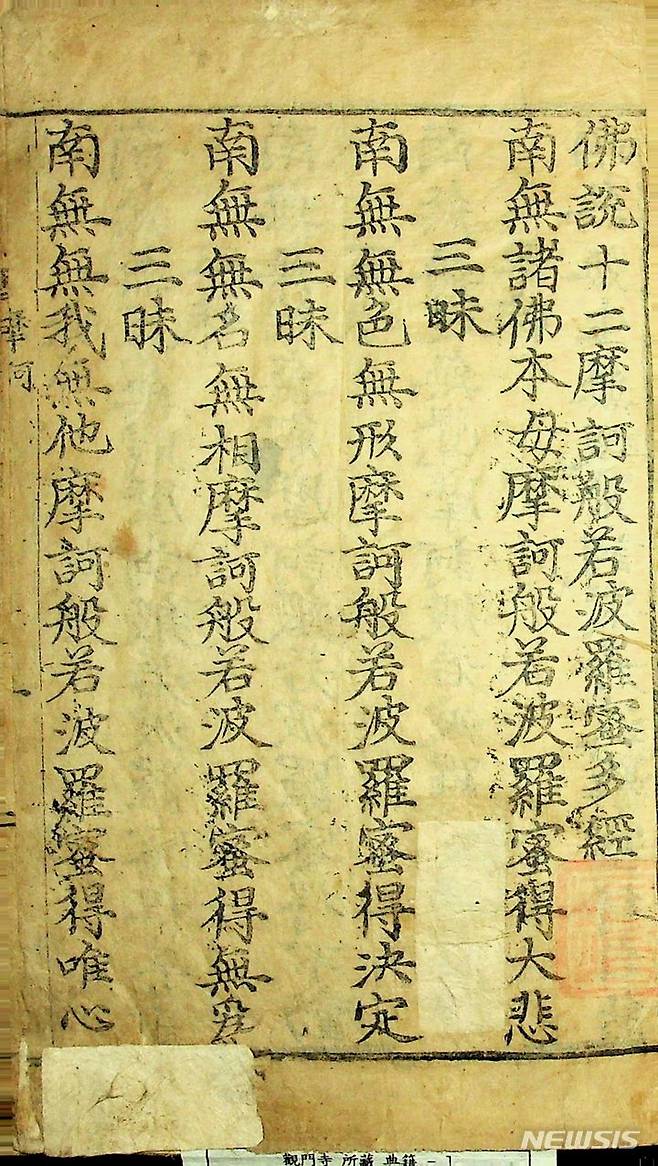 佛說十二摩訶般若波羅蜜多經
南無諸佛本母摩訶般若波羅蜜得大悲
三昧
南無無色無形摩訶般若波羅蜜得決定
三昧
南無無名無相摩訶般若波羅蜜得無
三昧
南無無我無他摩訶般若波羅蜜得唯心
摩訶
NEWSIS
觀門寺 所藏 典籍 - 1